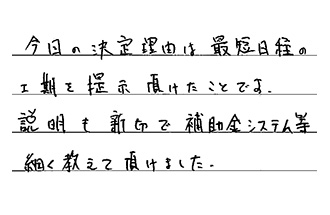 今回の決定理由は最短日程の
工期を提示頂けたことです。
説明も新印で補助金システム等
細く教えて頂けました。